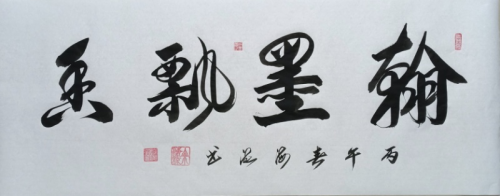 翰墨飘香
丙午春书